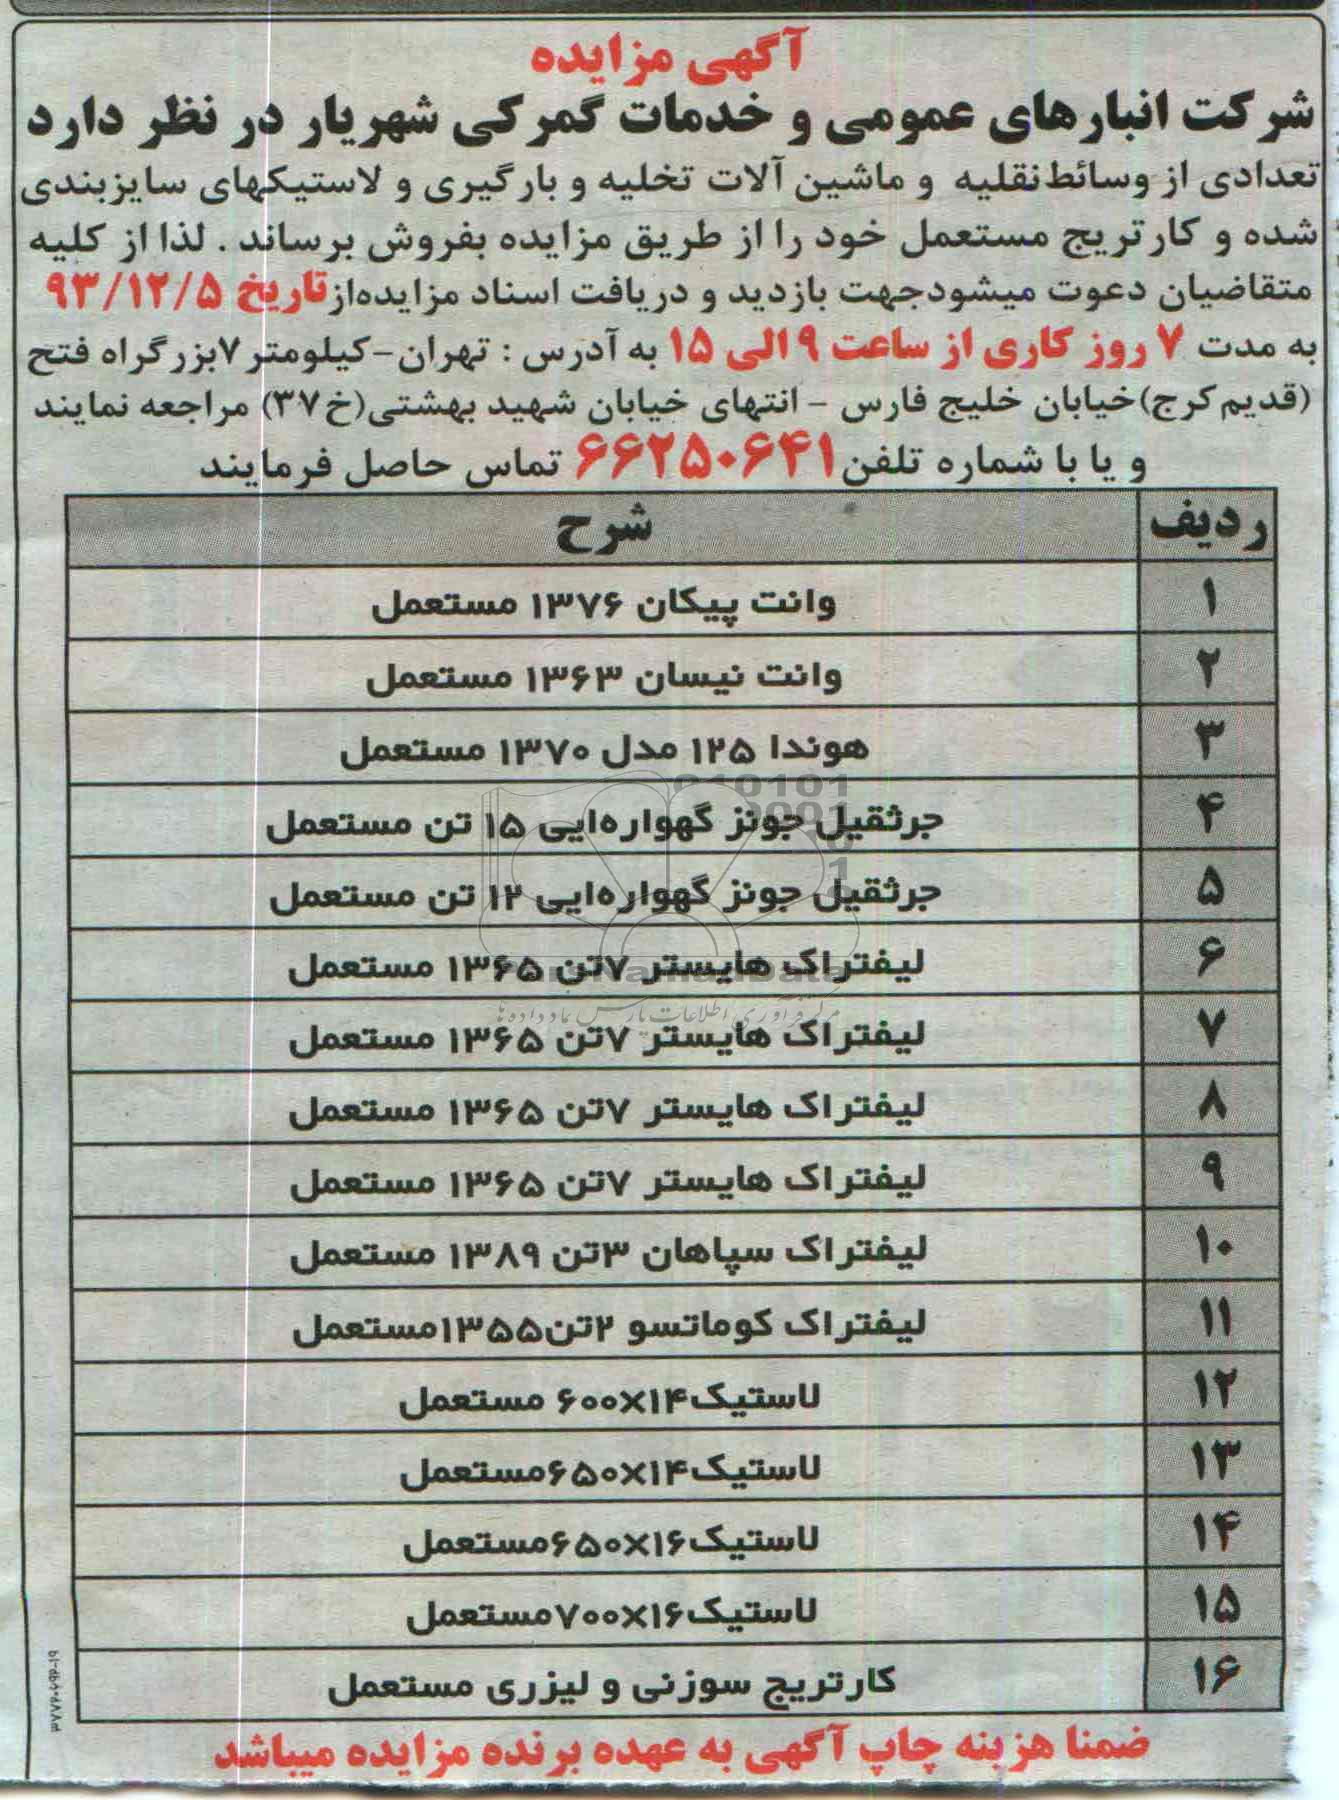 آگهی مزایده
شرکت انبارهای عمومی و خدمات گمرکی شهریار در نظر دارد
تعدادی از وسائط نقلیه و ماشین آلات تخلیه و بارگیری و لاستیکهای سایزبندی
شده و کارتریج مستعمل خود را از طریق مزایده بفروش برساند . لذا از کلیه
متقاضیان دعوت میشودجهت بازدید و دریافت اسناد مزایدهاز تاریخ ۹۳/۱۲/۵
به مدت ۷ روز کاری از ساعت ۹ الی ۱۵ به آدرس : تهران-کیلومتر ۷بزرگراه فتح
(قدیم کرج)خیابان خلیج فارس - انتهای خیابان شهید بهشتی(خ۳۷) مراجعه نمایند
و یا با شماره تلفن ۶۶۲۵۰۶۴۱ تماس حاصل فرمایند
ردیف شرح
۱ وانت پیکان ۱۳۷۶ مستعمل
۲ وانت نیسان ۱۳۶۳ مستعمل
۳ هوندا ۱۲۵ مدل ۱۳۷۰ مستعمل
۴ جرثقیل جونز گهواره‌ایی ۱۵ تن مستعمل
۵ جرثقیل جونز گهواره‌ایی ۱۲ تن مستعمل
۶ لیفتراک هایستر ۷تن ۱۳۶۵ مستعمل
۷ لیفتراک هایستر ۷تن ۱۳۶۵ مستعمل
۸ لیفتراک هایستر ۷تن ۱۳۶۵ مستعمل
۹ لیفتراک هایستر ۷تن ۱۳۶۵ مستعمل
۱۰ لیفتراک سپاهان ۳تن ۱۳۸۹ مستعمل
۱۱ لیفتراک کوماتسو ۲تن۱۳۵۵مستعمل
۱۲ لاستیک۱۴×۶۰۰ مستعمل
۱۳ لاستیک۱۴×۶۵۰مستعمل
۱۴ لاستیک۱۶×۶۵۰مستعمل
۱۵ لاستیک۱۶×۷۰۰مستعمل
۱۶ کارتریج سوزنی و لیزری مستعمل
ضمنا هزینه چاپ آگهی به عهده برنده مزایده میباشد